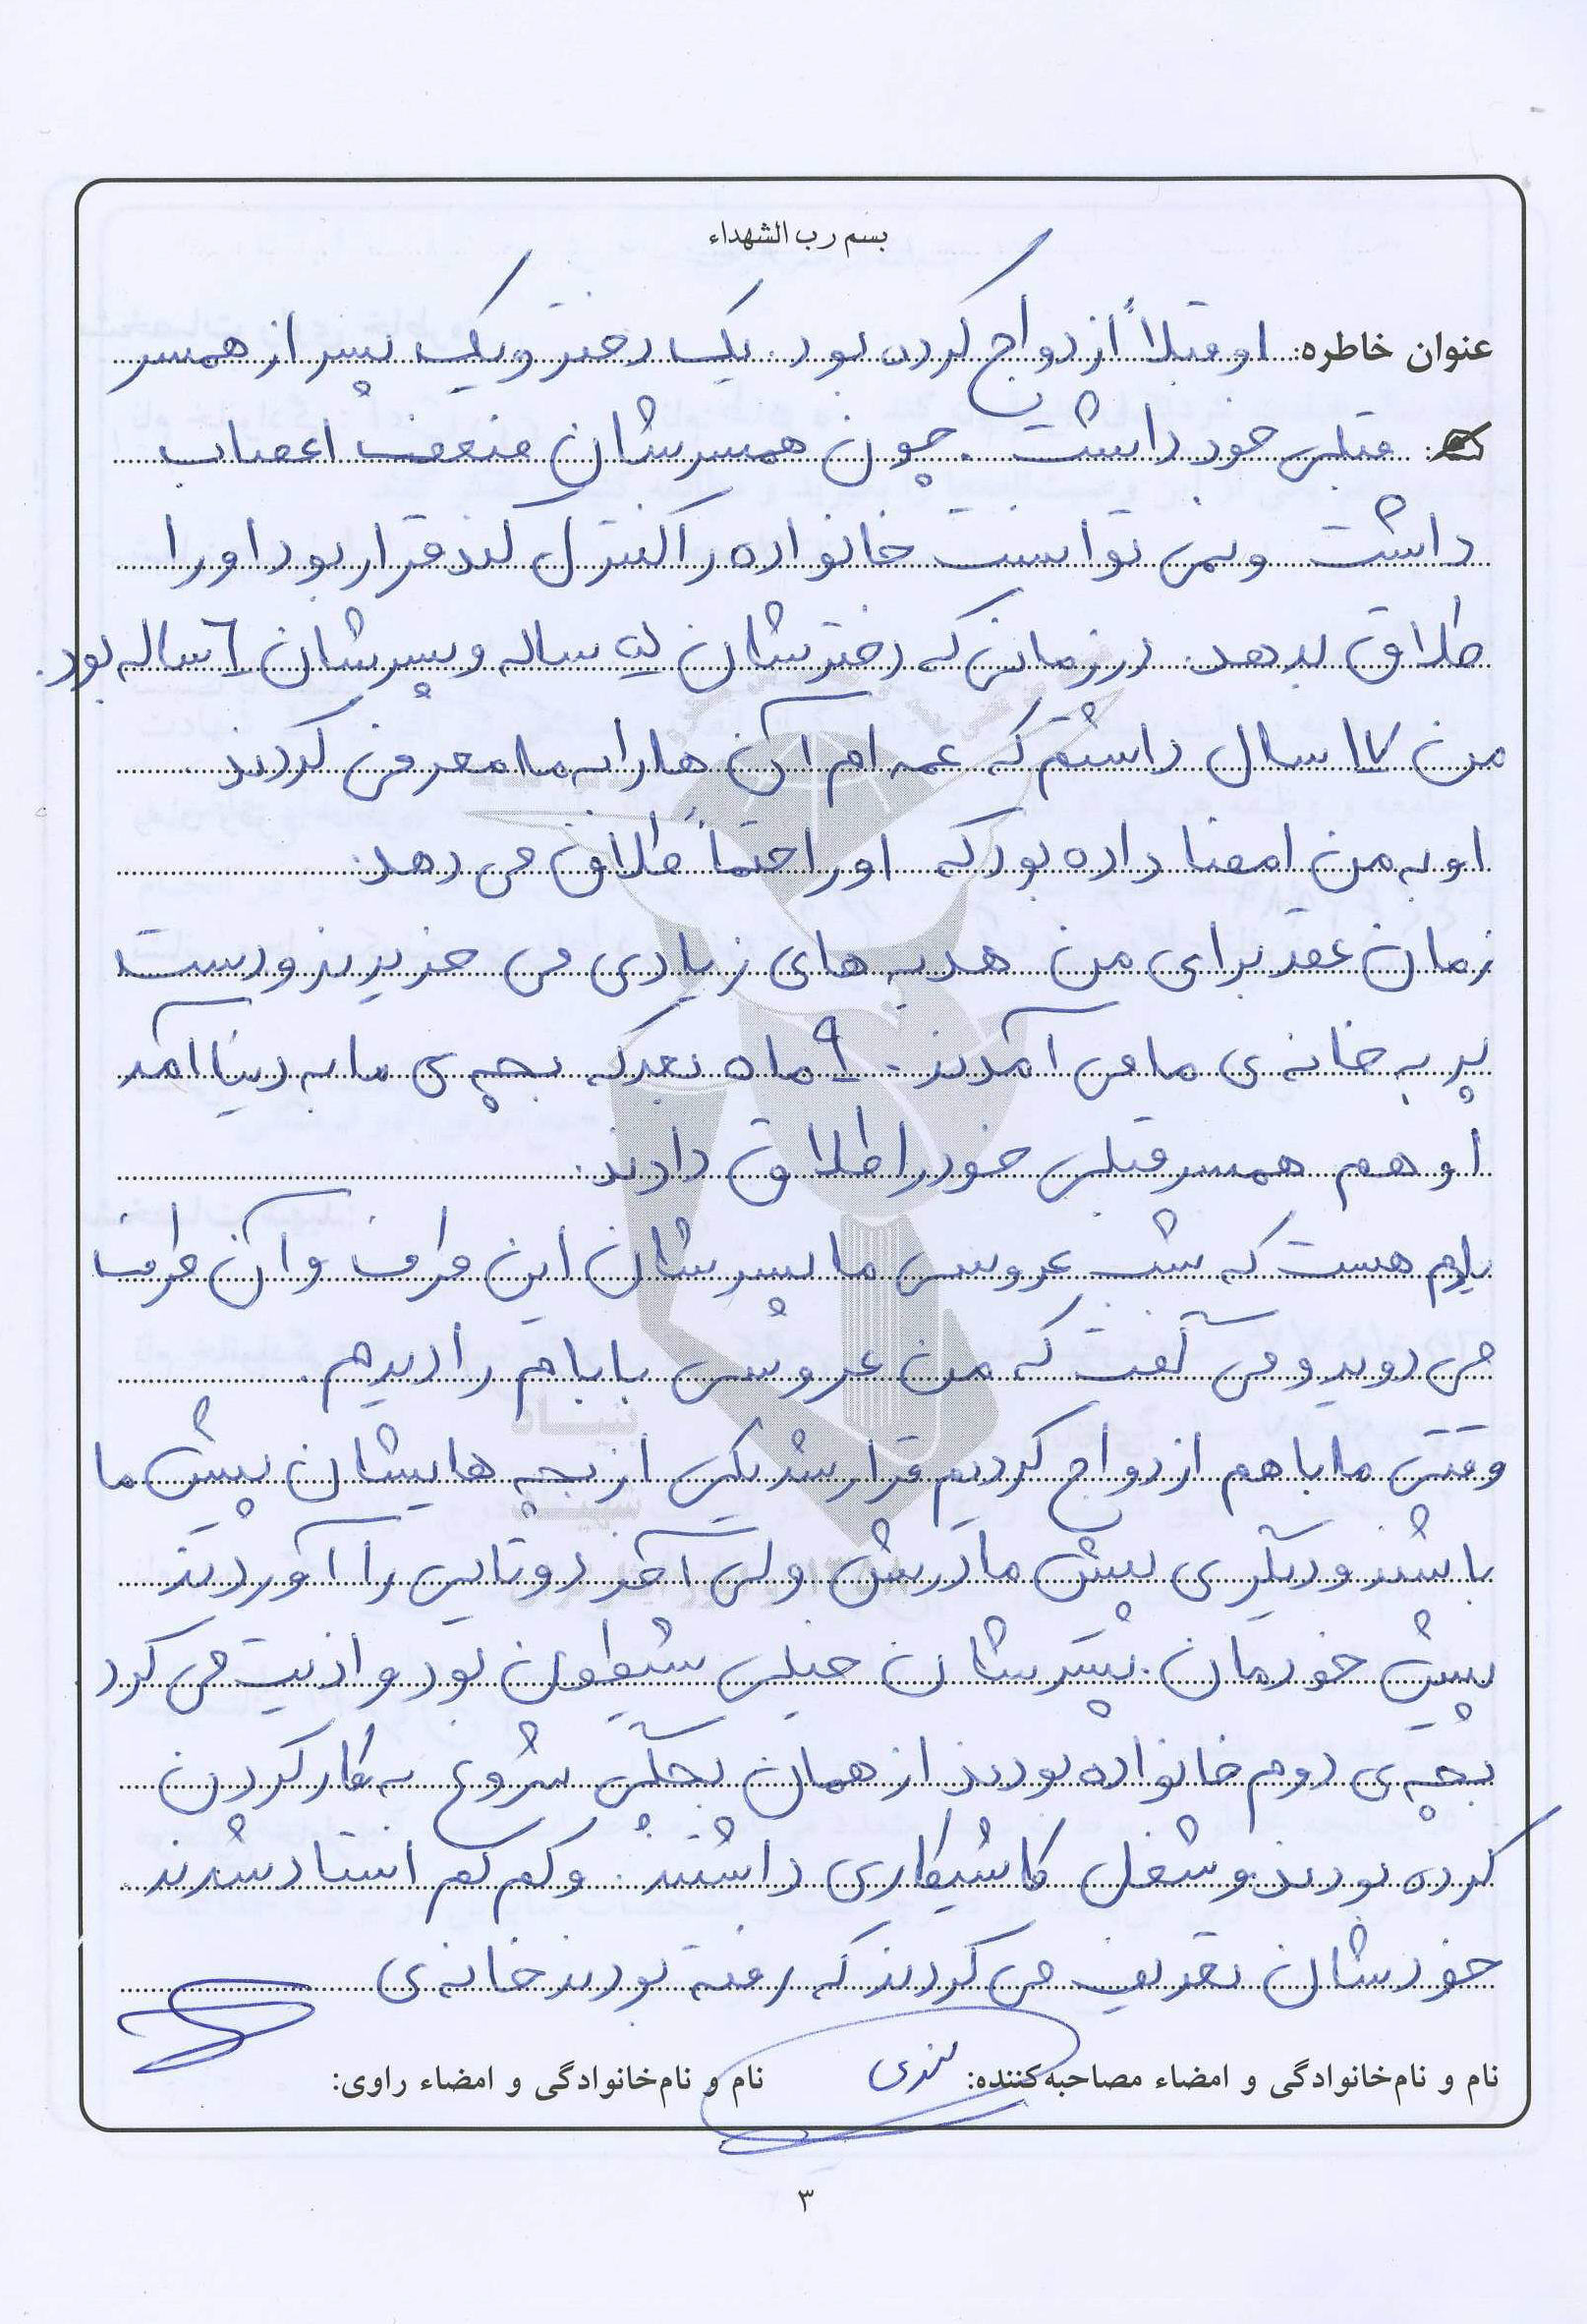 بسم رب الشهداء
عنوان خاطره: او قبلاً ازدواج کرده بود. یک دختر و یک پسر از همسر
قبلی خود داشت. چون همسرشان ضعف اعصاب
داشت و نمی توانست خانواده را کنترل کند قرار بود او را
طلاق بدهد. در زمانی که دخترشان ساله و پسرشان ٦ ساله بود.
من ١٧ سال داشتم که عمه ام آن ها را به ما معرفی کردند
او به من امضا داده بود که او را حتماً طلاق می دهد.
زمان عقد برای من هدیه های زیادی می خریدند و دست
پر به خانه ی ما می آمدند. ٩ ماه بعد که بچه ی ما به دنیا آمد
او هم همسر قبلی خود را طلاق دادند.
یادم هست که شب عروسی ما پسرشان این طرف و آن طرف
می دوید و می گفت که من عروسی بابام را دیدم.
وقتی ما با هم ازدواج کردیم قرار شد یکی از بچه هایشان پیش ما
باشند و دیگری پیش مادرش ولی آخر دوتایی را آوردند
پیش خودمان. پسرشان خیلی شیطون بود و اذیت می کرد
بچه ی دوم خانواده بودند از همان بچگی شروع به کار کردن
کرده بودند و شغل کاشیکاری داشتند. و کم کم استاد شدند
خودشان تعریف می کردند که رفته بودند خانه ی
نام و نام‌خانوادگی و امضاء مصاحبه‌کننده:
نام و نام‌خانوادگی و امضاء راوی:
۳